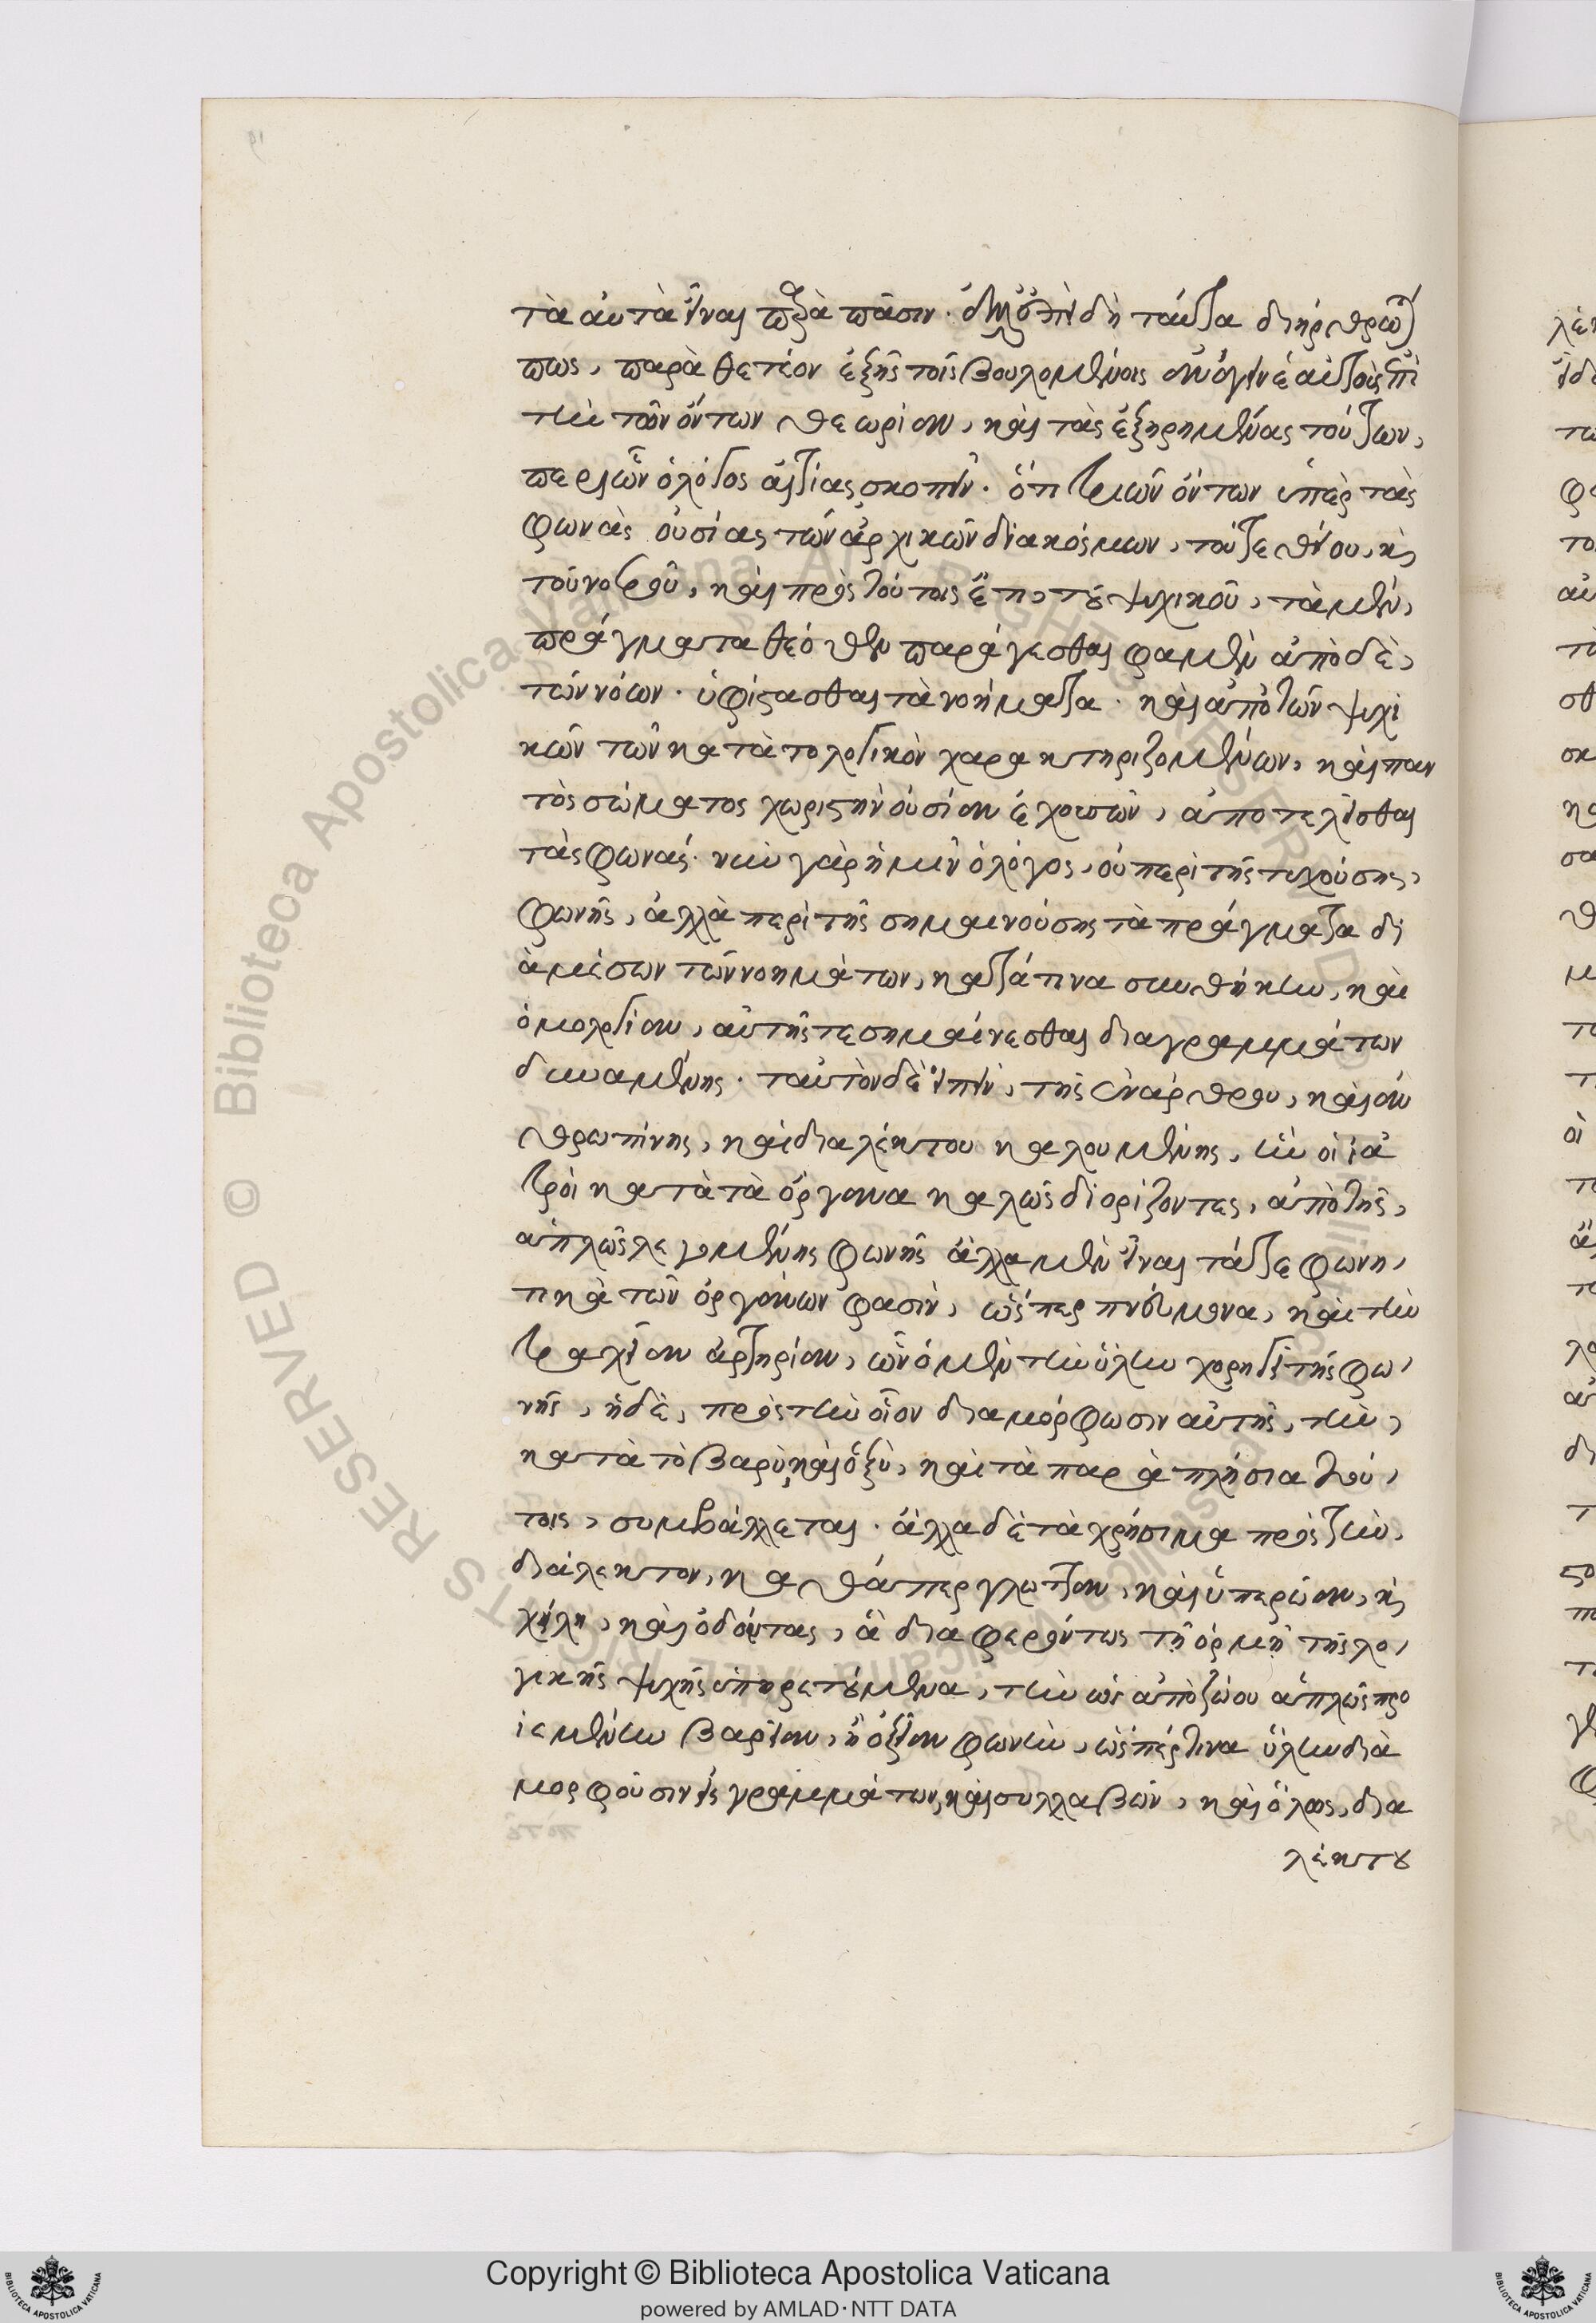 τὰ αὐτὰ εἶναι παρὰ πᾶσιν. ἐπειδὴ ταῦτα διήρθρωταί
πως, παραθετέον ἑξῆς τοῖς βουλομένοις ἀνάγειν ἑαυτοὺς ἐπὶ
τὴν τῶν ὄντων θεωρίαν, καὶ τὰς ἐξῃρημένας τούτων,
περὶ ὧν ὁ λόγος αἰτίας σκοπεῖν. ὅτι τριῶν ὄντων ὑπὲρ τὰς
φωνὰς οὐσίας τῶν ἀρχικῶν διακόσμων, τοῦ τε θείου, καὶ
τοῦ νοεροῦ, καὶ πρὸς τούτοις ἔτι, τοῦ ψυχικοῦ, τὰ μὲν,
πράγματα θεόθεν παράγεσθαι φαμὲν ἀπὸ δὲ,
τῶν νόων. ὑφίστασθαι τὰ νοήματα. καὶ ἀπὸ τῶν ψυχι
κῶν τῶν κατὰ τὸ λογικὸν χαρακτηριζομένων, καὶ παν
τὸς σώματος χωριστὴν οὐσίαν ἐχουσῶν, ἀποτελεῖσθαι
τὰς φωνάς. νῦν γὰρ ἡμῖν ὁ λόγος, οὐ περὶ τῆς τυχούσης,
φωνῆς, ἀλλὰ περὶ τῆς σημαινούσης τὰ πράγματα δι
ὰ μέσων τῶν νοημάτων, κατά τινα συνθήκην, καὶ
ὁμολογίαν, αὐτῆς τε σημαίνεσθαι διὰ γραμμάτων
δυναμένης. ταὐτὸν δὲ εἰπεῖν, τῆς ἐνάρθρου, καὶ ἀν
θρωπίνης, καὶ διαλέκτου καλουμένης, ἣν οἱ ἰα
τροὶ κατὰ τὰ ὄργανα καλῶς διορίζοντες, ἀπὸ τῆς,
ἁπλῶς λεγομένης φωνῆς ἄλλα μὲν εἶναι τά τε φωνη,
τικὰ τῶν ὀργάνων φασὶν, ὥσπερ πνεύμονα, καὶ τὴν
τραχεῖαν ἀρτηρίαν, ὧν ὁ μὲν τὴν ὕλην χορηγεῖ τῆς φω,
νῆς, ἡ δὲ, πρὸς τὴν οἷον διαμόρφωσιν αὐτῆς, τὴν,
κατὰ τὸ βαρὺ, καὶ ὀξὺ, καὶ τὰ παραπλήσια τού,
τοις, συμβάλλεται. ἄλλα δὲ τὰ χρήσιμα πρὸς τὴν,
διάλεκτον, καθάπερ γλῶτταν, καὶ ὑπερώαν, καὶ
χείλη, καὶ ὀδόντας, ἃ διαφερόντως τῇ ὁρμῇ τῆς λο,
γικῆς ψυχῆς ὑπηρετούμενα, τὴν ὡς ἀπὸ ζώου ἁπλῶς προ
ϊεμένην βαρεῖαν, ἢ ὀξεῖαν φωνὴν, ὥσπερ τινα ὕλην δια
μορφοῦσιν εἰς γραμμάτων, καὶ συλλαβῶν, καὶ ὅλως, δια
λέκτου